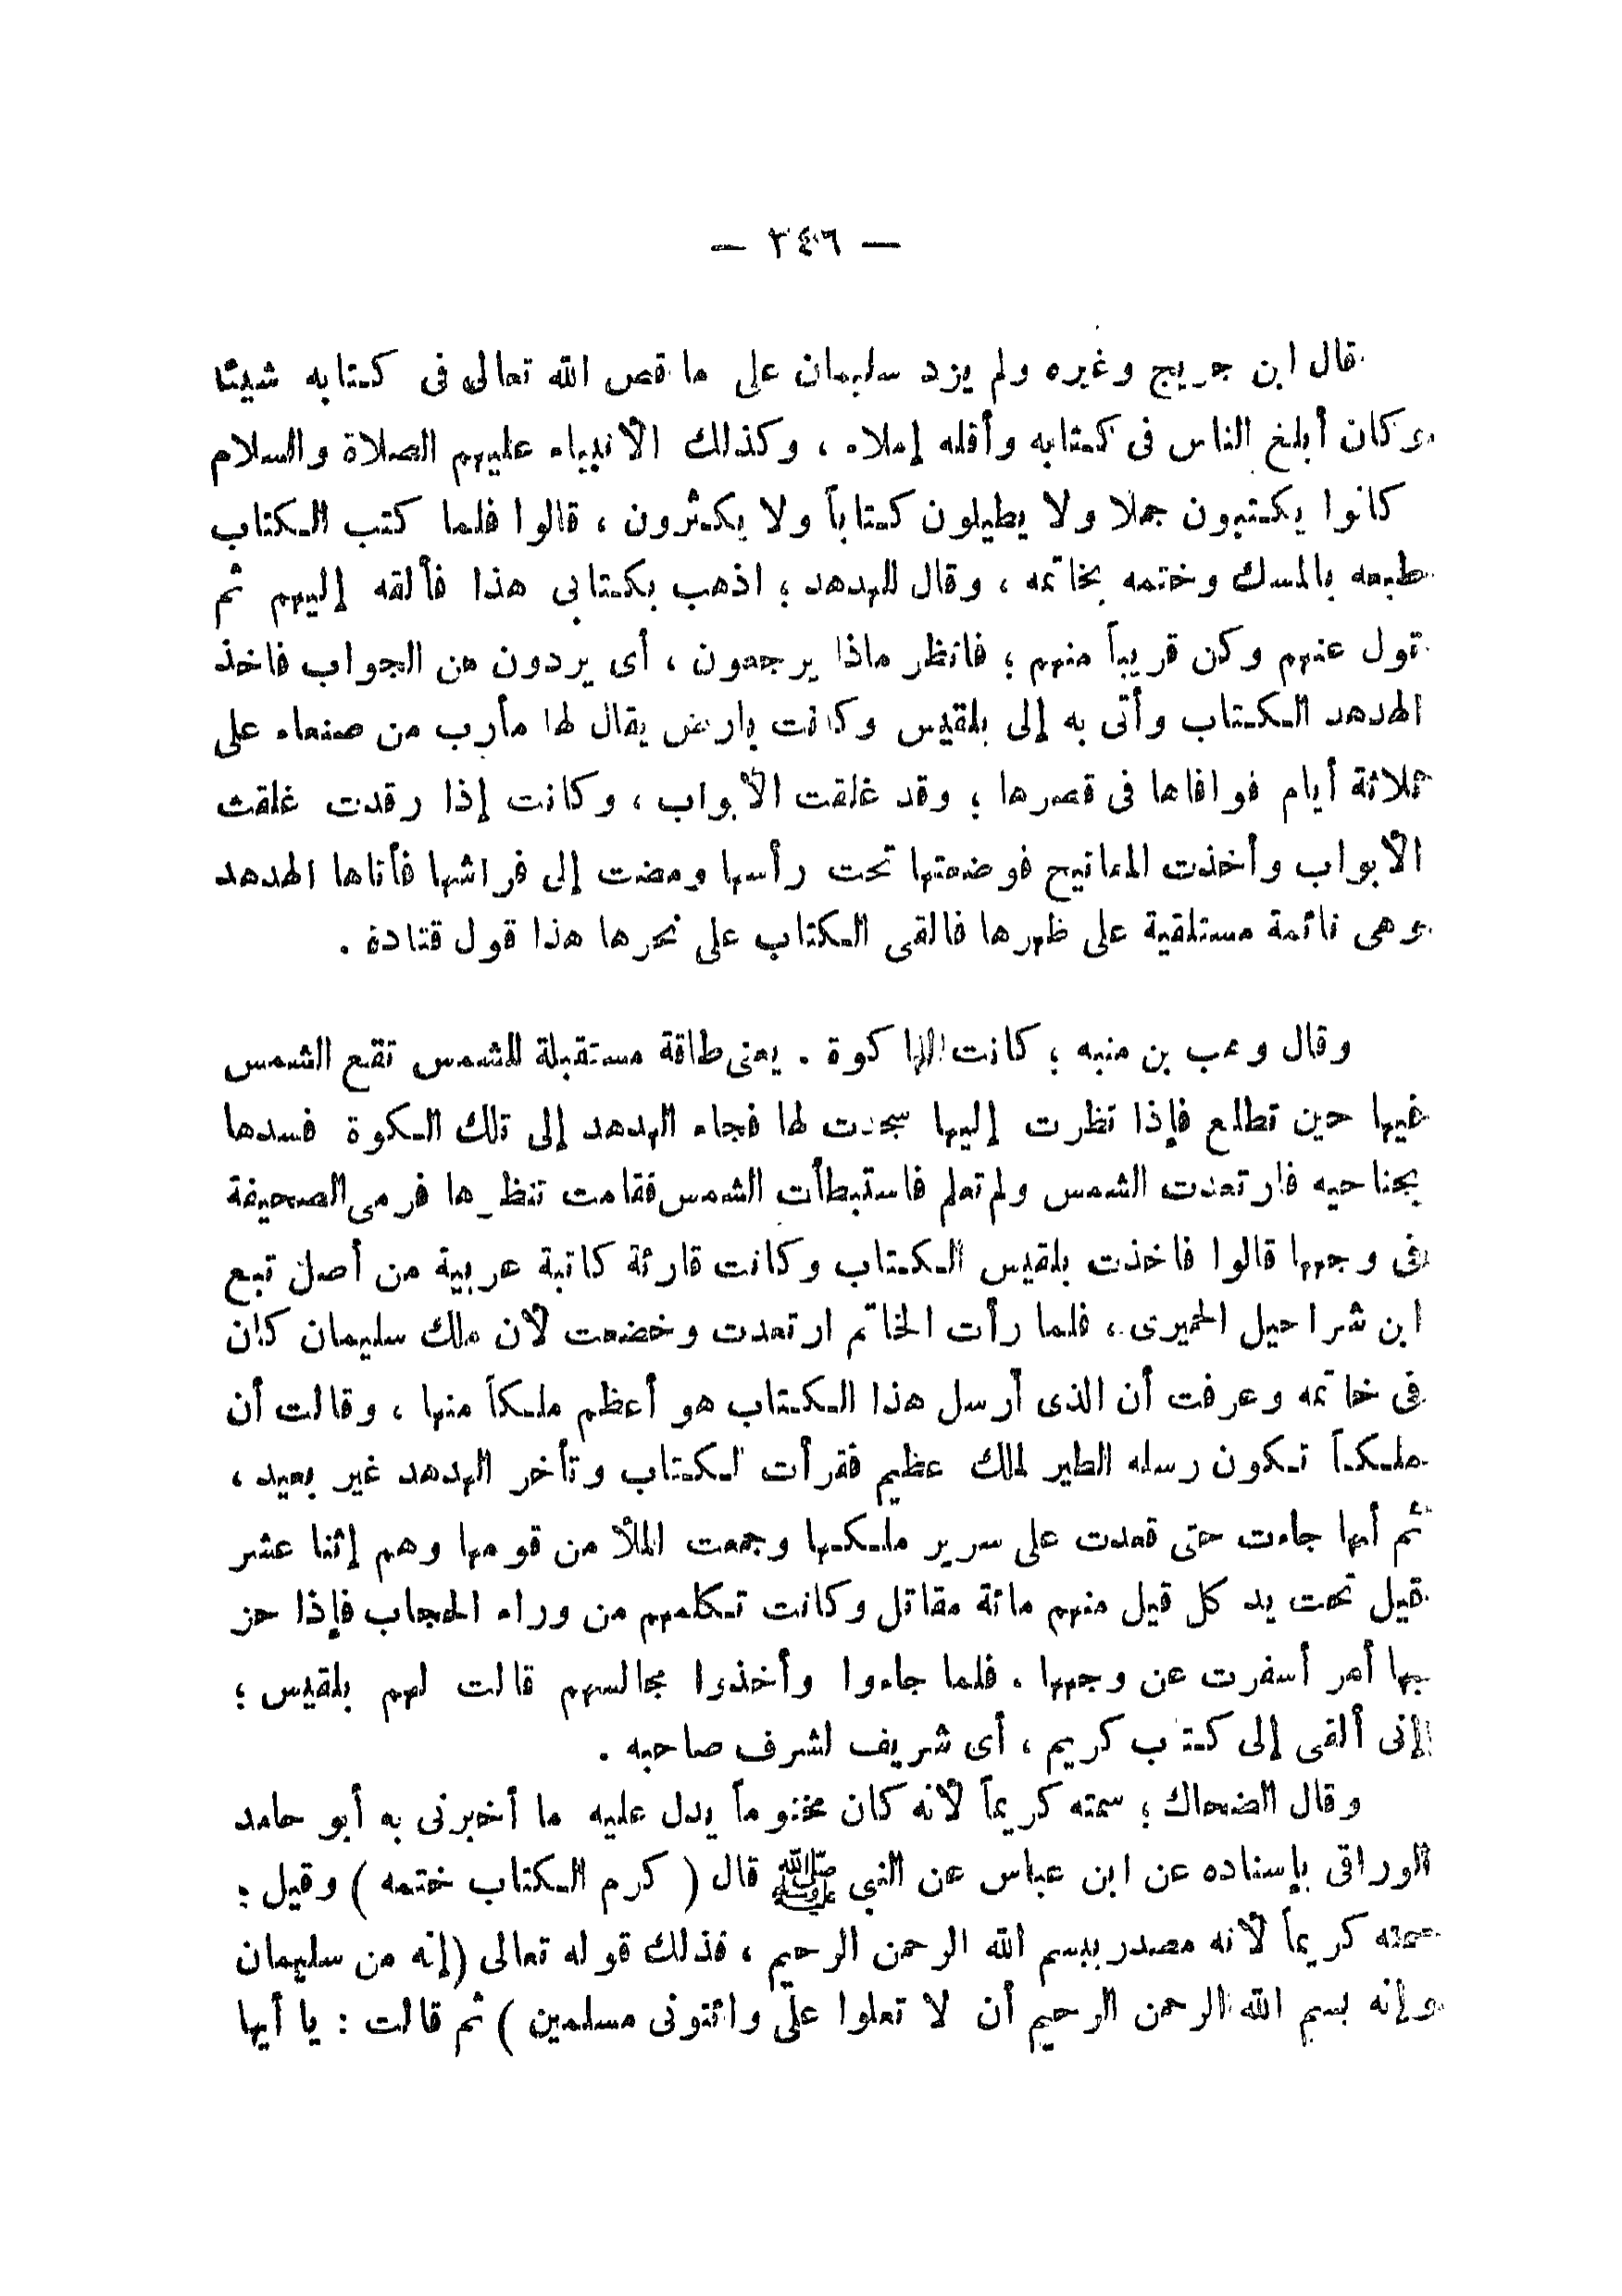 — ٢٤٦ —
قال ابن جريج وغيره ولم يزد سليمان على ما قص الله تعالى فى كتابه شيئا
وكان أبلغ الناس فى كتابه وأقله إملاء ، وكذلك الأنبياء عليهم الصلاة والسلام
كانوا يكتبون جملا ولا يطيلون كتاباً ولا يكثرون ، قالوا فلما كتب الكتاب
طبعه بالمسك وختمه بخاتمه ، وقال للهدهد ؛ اذهب بكتابى هذا فألقه إليهم ثم
تول عنهم وكن قريباً منهم ؛ فانظر ماذا يرجعون ، أى يردون من الجواب فاخذ
الهدهد الكتاب وأتى به إلى بلقيس وكانت بارض يقال لها مأرب من صنعاء على
ثلاثة أيام فوافاها فى قصرها ؛ وقد غلقت الأبواب ، وكانت إذا رقدت غلقت
الأبواب وأخذت المفاتيح فوضعتها تحت رأسها ومضت إلى فراشها فأتاها الهدهد
وهى نائمة مستلقية على ظهرها فالقى الكتاب على نحرها هذا قول قتادة .
وقال وهب بن منبه ؛ كانت لها كوة . يعنى طاقة مستقبلة للشمس تقع الشمس
فيها حين تطلع فإذا نظرت إليها سجدت لها فجاء الهدهد إلى تلك الكوة فسدها
بجناحيه فارتعدت الشمس ولم تعلم فاستبطأت الشمس فقامت تنظرها فرمى الصحيفة
فى وجهها قالوا فاخذت بلقيس الكتاب وكانت قارئة كاتبة عربية من أصل تبع
ابن شراحيل الحميرى ، فلما رأت الخاتم ارتعدت وخضعت لأن ملك سليمان كان
فى خاتمه وعرفت أن الذى أرسل هذا الكتاب هو أعظم ملكاً منها ، وقالت أن
ملكاً تكون رسله الطير لملك عظيم فقرأت الكتاب وتأخر الهدهد غير بعيد ،
ثم أنها جاءت حتى قعدت على سرير ملكها وجمعت الملأ من قومها وهم إثنا عشر
قيل تحت يد كل قيل منهم مائة مقاتل وكانت تكلمهم من وراء الحجاب فإذا حز
بها أمر أسفرت عن وجهها . فلما جاءوا وأخذوا مجالسهم قالت لهم بلقيس ؛
إنى ألقى إلى كتاب كريم ، أى شريف لشرف صاحبه .
وقال الضحاك ؛ سمته كريماً لأنه كان مختوماً يدل عليه ما أخبرنى به أبو حامد
الوراقى بإسناده عن ابن عباس عن النبي ﷺ قال ( كرم الكتاب ختمه ) وقيل :
سمته كريماً لأنه مصدر ببسم الله الرحمن الرحيم ، فذلك قوله تعالى (إنه من سليمان
وإنه بسم الله الرحمن الرحيم أن لا تعلوا علىّ وائتونى مسلمين ) ثم قالت : يا أيها